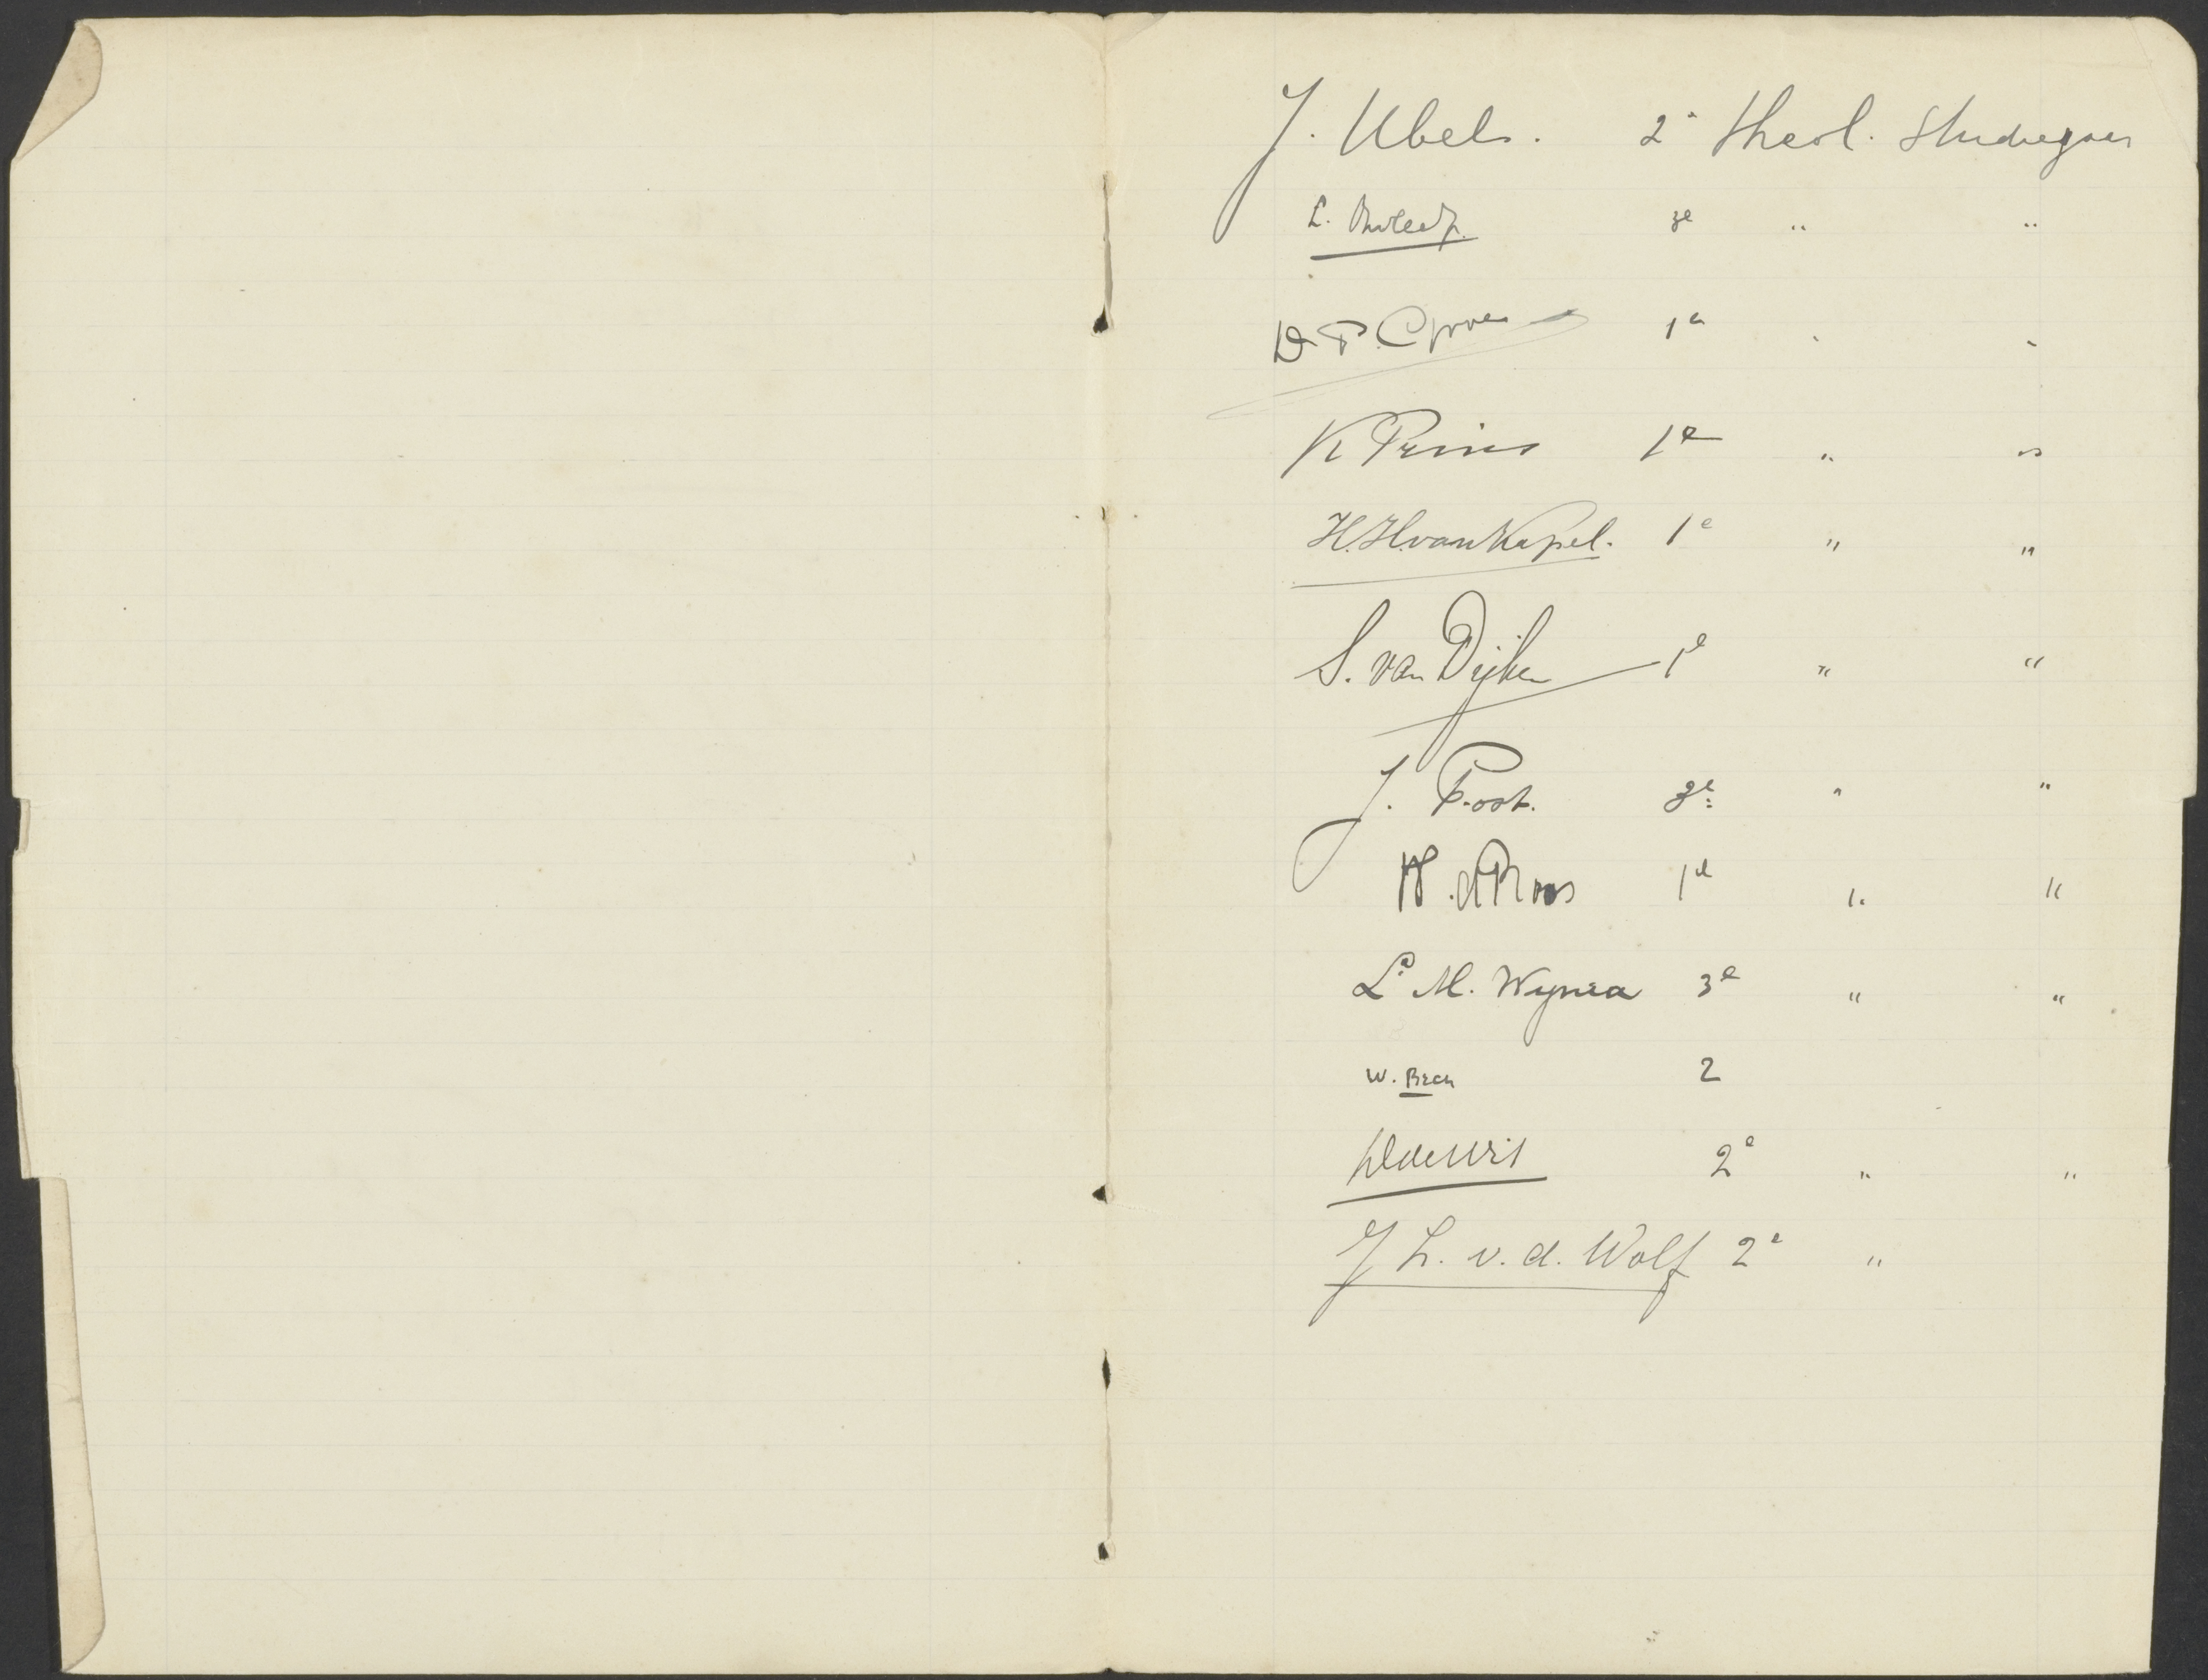 J. Ubels. 2e theol. studiejaar
L. 3e " "
D. P. 1e " "
K Prins 1e " "
H. H. van Kapel. 1e " "
S. van Dijken 1e " "
J. Post. 3e " "
W. d Roos 1e " "
L. M. Wynia 3e " "
W. Beck 2
2e " "
J L. v. d. Wolf 2e "